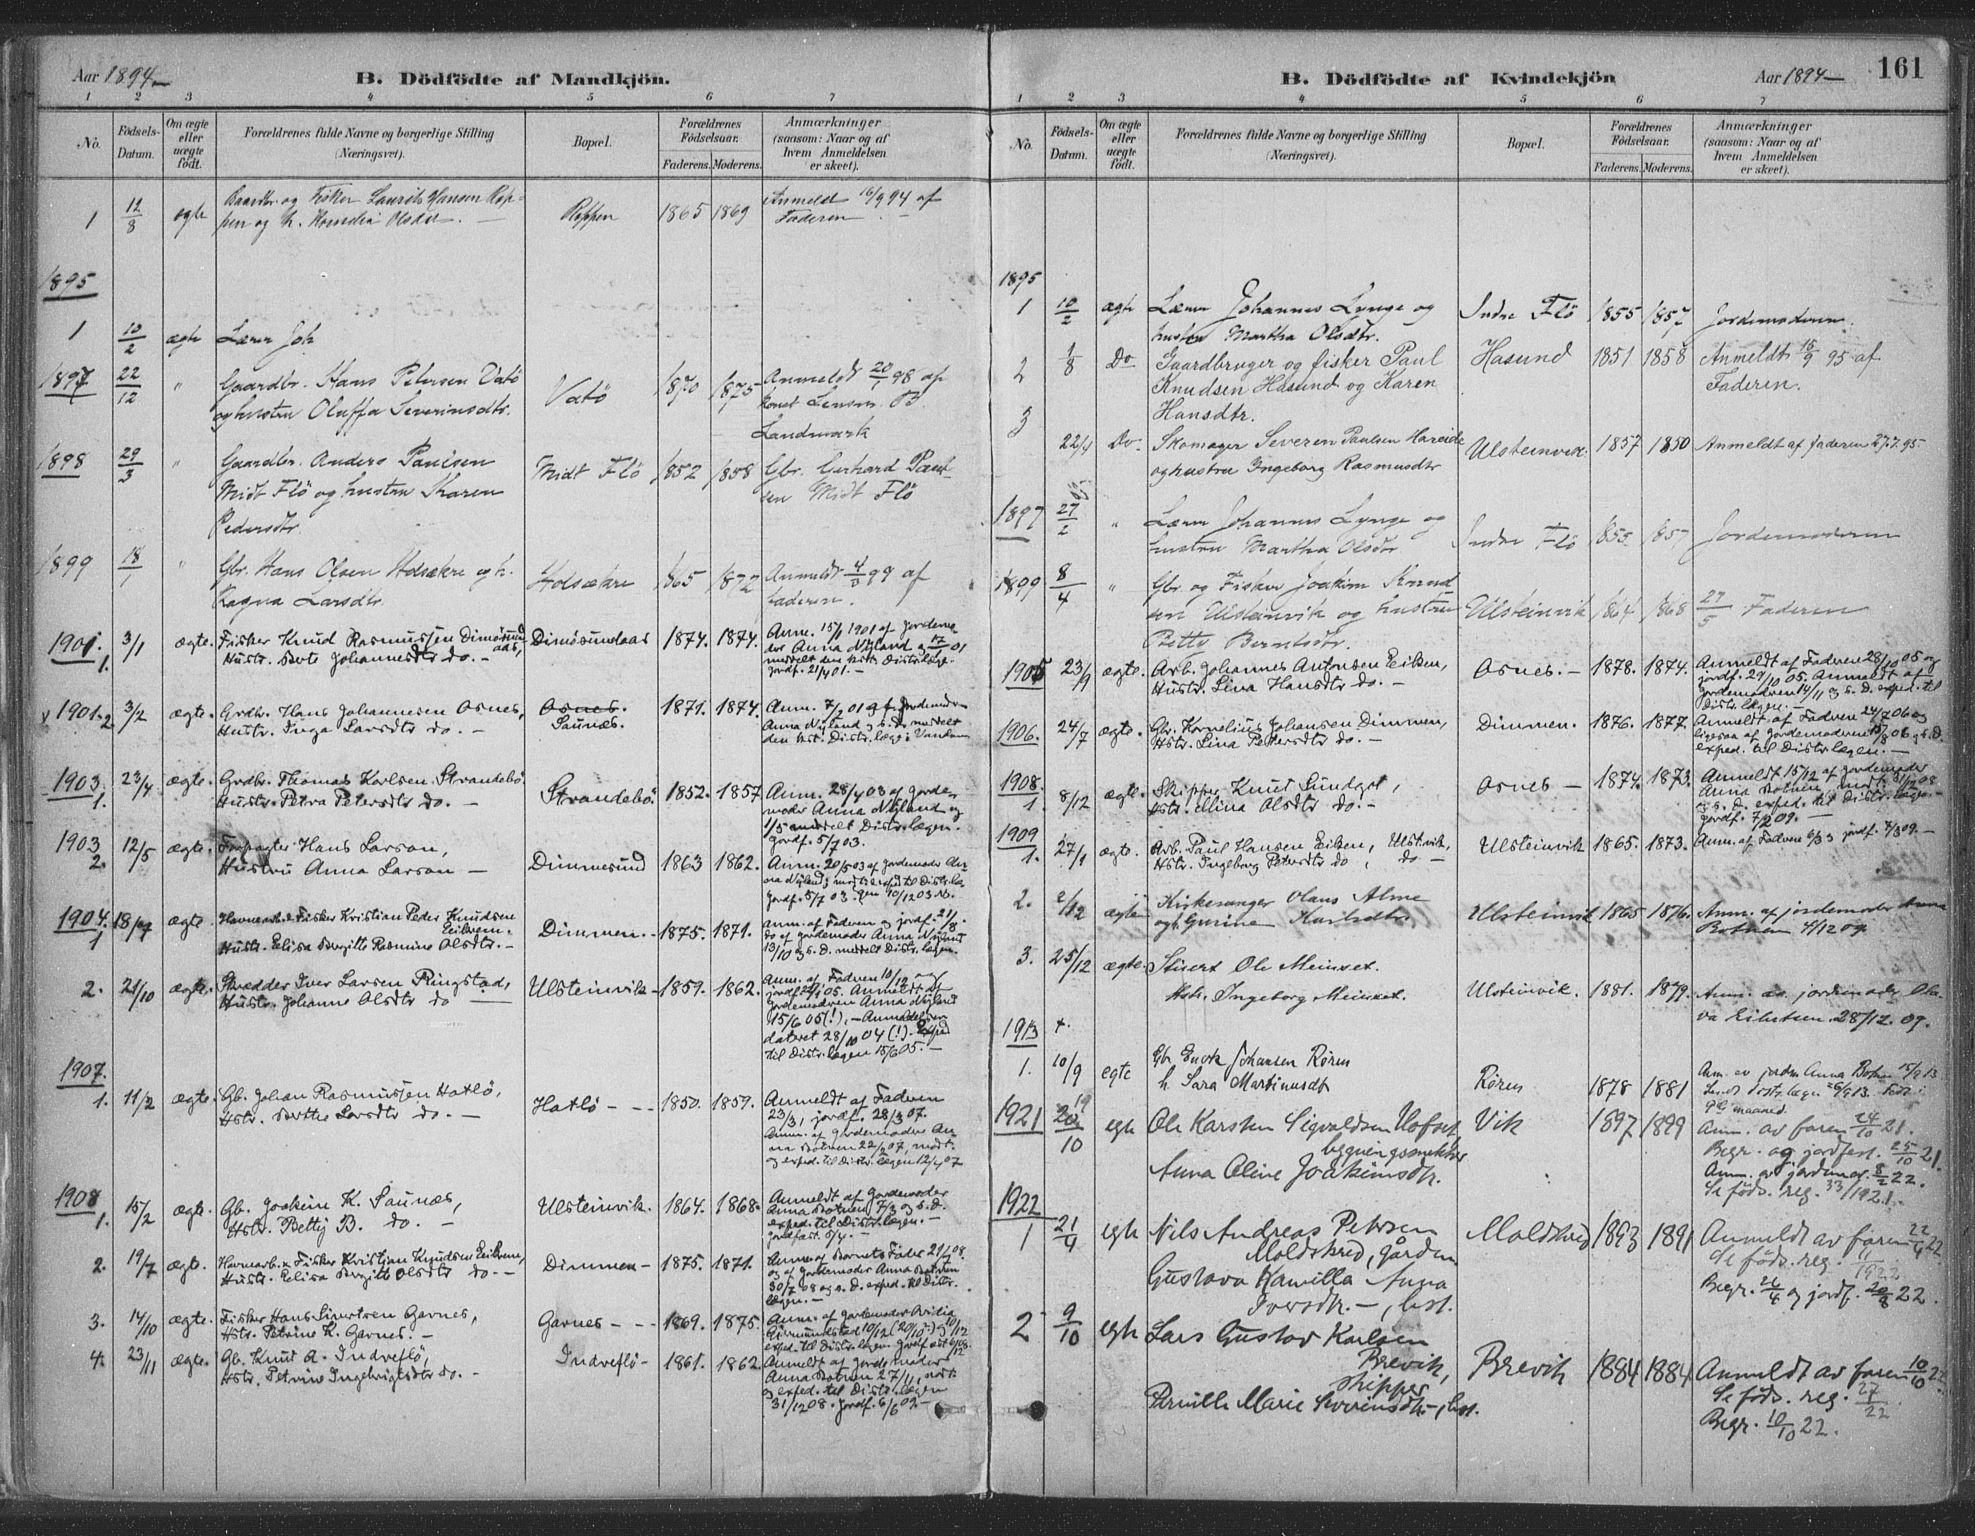 Aar 1894
B. Dödfödte af Mandkjön.
1 2 3 4 5 6 7
No. Födsels-Datum. Om ægte eller uægte födt. Forældrenes fulde Navne og borgerlige Stilling (Næringsvei). Bopæl. Forældrenes Födselsaar. Faderens. Moderens. Anmærkninger (saasom: Naar og af hvem Anmeldelsen er skeet).
1 12/8 egte Gaardbr. og Fisker Laurits Hansen Røp- Røppen 1865 1869 Anmeldt 16/9 94 af
pen og h. Olsdtr. Faderen
1895
1 10/2 ægte Lærer Joh
1897 22/12 " Gaardbr. Hans Petersen Vatö Vatö 1870 1875 Anmeldt 20/1 98 af
og hustru Oluffa Severinsdtr. Lensm. B.
Landmark
1898 29/3 " Gaardbr. Anders Paulsen Midt Flö 1852 1858 Gbr. Gerhard Paul-
Midt Flö og hustru Karen sen Midt Flö
Pedersdtr.
1899 18/1 " Gbr. Hans Olsen Holsækre og h. Holsækre 1865 1872 Anmeldt 4/3 99 af
Ragna Larsdtr. Faderen.
1901. 1. 3/1 ægte. Fisker Knud Rasmussen Dimøsund Dimøsundaas 1874. 1874. Anm. 15/1 1901 af Jordemo-
Hustr. Berte Johannesdtr do. - aas, der Anna Nyland og 17/1 01
meddelt Distr.læge.
Jordf. 21/4 01. -
1901. 2. 3/2 ægte. Grdbr. Hans Johannesen Osnes, Osnes. 1871. 1874. Anm. 7/2 01 af Jordemoder
Hustr. Inga Larsdtr do. - Saunes. Anna Nyland og s. D. meddelt
den kst. Distr.læge
1903. 1. 23/4 ægte. Grdbr. Thomas Karlsen Strandebö Strandebö 1852. 1857 Anm. 28/4 03 af Jorde-
Hustr. Petra Petersdtr do. - moder Anna Nyland og
1/5 meddelt Distr.lægen.
Jordf. 5/7 03.
1903 2. 12/5 ægte. Forpagter Hans Larson, Dimmesund 1863 1862. Anm. 20/5 03 af Jordemoder An-
Hustru Anna Larson - na Nyland;
Jordf. 5/7 03.
1904. 1 18/9 ægte. Havnearb. & Fisker Kristian Peder Knudsen Dimmen. 1875. 1871. Anm. af Faderen og jordf. 21/8.
Eikrem. do af Jordemoder Anna Nyland
Hustr. Elisa Bergitt Rasmine Olsdtr. - 13/10 og s. D. meddelt Distr.lægen.
2. 21/10 ægte. Skrædder Iver Larsen Ringstad, Ulsteinvik 1859. 1862. Anm. af Faderen 10/12 og
Hustr. Johanne Olsdtr do - jordf. 05. Anmeldt af
Jordemoderen Anna Nyland
15/6 05 (!). - Anmeldelsen
dateret 28/10 04 (!). Exped
til Distr.lægen 15/6 05. -
1907.
1. 11/2 ægte. Gb. Johan Rasmussen Hatlö, Hatlö - - 1850. 1859. Anmeldt af Faderen
Hstr. Berthe Larsdtr do. - 23/3, jordf. 28/3 07.
Anm. af Jordemoder An-
na Botnen 22/2 07, modt.
og exped. til Distr.lægen 12/4 07
1908
1. 15/2 ægte. Gb. Joakim K. Saunæs, Ulsteinvik. 1864. 1868. Anmeldt af Jordemoder
Hstr. Betty B. do. - Anna Botnen 7/3 og s. D.
exped. til Distr.lægen. -
Jordfæst. 5/4. -
2. 19/7 ægte. Havnearb. & Fisker Kristian Knudsen Eikrem, Dimmen - 1875. 1871. Anm. af Barnets Fader 21/7 08.
Hustr. Elisa Bergitt Olsdtr do. - og af Jordemoder Anna Botnen
30/7 08 og s. D. exped. til Distr.
lægen. -
3. 14/10 ægte. Fisker Hans Sivertsen Garnes, Garnes - - 1869. 1875. Anm. af Jordemoder
Hstr. Petrine K. Garnes. - 10/12 (20/10?) og 10/12
exped. til Distr.lægen. Jordfæst
4. 23/11 ægte. Gb. Knut A. Indreflö, Indreflö - 1861. 1862. Anmeldt af Jordemoder
Hstr. Petrine Ingebrigtsdtr do. - Anna Botnen 27/11, modt.
og exped. til Distr.lægen
31/12 08. Jordf. 6/6 09 -
161
B. Dödfödte af Kvindekjön
Aar 1894
1 2 3 4 5 6 7
No. Födsels-Datum. Om ægte eller uægte födt. Forældrenes fulde Navne og borgerlige Stilling (Næringsvei). Bopæl. Forældrenes Födselsaar. Faderens. Moderens. Anmærkninger (saasom: Naar og af hvem Anmeldelsen er skeet).
1895
1 10/2 ægte Lærer Johannes Lynge og Indre Flö 1855 1857 Jordemoderen.
hustru Martha Olsdtr.
2 1/8 Do Gaardbruger og fisker Paul Hasund 1851 1858 Anmeldt 16/9 95 af
Knudsen Hasund og Karen Faderen.
Hansdtr.
3 22/4 Do. Skomager Severen Paulsen Hareide Ulsteinvik. 1857 1850 Anmeldt af faderen 27.7.95
og hustru Ingeborg Rasmusdtr
1897 27/2 " Lærer Johannes Lynge og Indre Flö 1855 1857 Jordemoderen
hustru Martha Olsdtr.
1899 8/4 " Gbr. og Fisker Joakim Knud- Ulsteinvik 1864 1868 27/5 Faderen
sen Ulsteinvik og hustru
Betty Berntsdtr.
1905 23/9 ægte. Arb. Johannes Antonsen Eiken, Osnes. - 1878. 1874. Anmeldt af Faderen 28/10 05 og
Hustr. Lina Hansdtr do. - jordf. 29/10 05. Anmeldt af
Jordemoderen 14/11 og s. D. exped. til
Distr.lægen. -
1906. 24/7 ægte. Gb. Kornelius Johansen Dimmen, Dimmen. - 1876. 1877. Anmeldt af Faderen 24/7 06 og
Hstr. Lina Petersdtr do. - ligesaa af Jordemoderen 15/8 06 og s. D.
exped. til Distr.lægen. -
1908. 1. 8/12 ægte. Skipper Knut Sundget, Osnes - 1874. 1873. Anmeldt 15/12 af Jordemoder
Hstr. Mina Olsdtr do. - Anna Botnen, modt. 31/12 08
og s. D. exped. til Distr.lægen. -
Jordf. 7/2 09. -
1909 1. 27/1 ægte. Arb. Paul Hansen Eiken, Ulst.vik, Ulsteinvik 1865. 1873. Anm. af Faderen 6/3 jordf. 7/3 09. -
Hstr. Ingeborg Petersdtr do, do -
2. 2/12 ægte Kirkesanger Olaus Alme Ulsteinvik 1865 1876. Anm. af jordemoder Anna
og h. Gurine Botnen 4/12 09
3. 25/12 ægte. Stuert Ole Meinset. Ulsteinvik. 1881. 1879. Anm. av jordemoder Oli-
Hstr. Ingeborg Meinset. va 28/12.09.
1913 +
1. 10/9 egte Gb. Enok Johansen Rören Rören 1878 1881 Anm. av jordm. Anna Botnen 15/9 13
h. Sara Martinusdtr Sendt distr.lægen 26/9 13. Född i
maaned.
1921 19/10 egte Ole Karsten Sigvaldsen Hofset, Vik 1897 1899 Anm. av faren 24/10 21.
bygningssnekker Begr. og jordfest. 25/10 21.
Anna Oline Joakimsdtr. Anm. av jordmor 8/2 22.
Se föds. reg. 33/1921.
1922
1 21/4 egte Nils Andreas Petersen Moldskred 1893 1891 Anmeldt av faren 22/4 22
Moldskred, gårdm. Se föds. reg. 11/1922
Gustava Kamilla Anna Begr. 26/4 og jordf. 20/8 22.
Iversdtr. -, hst.
2 9/10 egte Lars Gustav Karlsen Brevik 1884 1884 Anmeldt av faren 10/10 22.
Brevik, Se föds. reg. 27/22
skipper Begr. 10/10 22.
Pernille Marie Severinsdtr. -, hst.